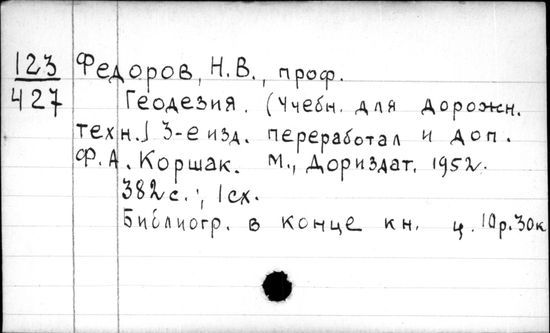 123 Федоров, Н.В., проф.
427 Геодезия. (Учебн. для дорожн.
техн.) 3-е изд. переработал и доп.
Ф.А. Коршак. М., Дориздат, 1952.
382 с.; 1 сх.
Библиогр. в конце кн. ц. 10р.30к